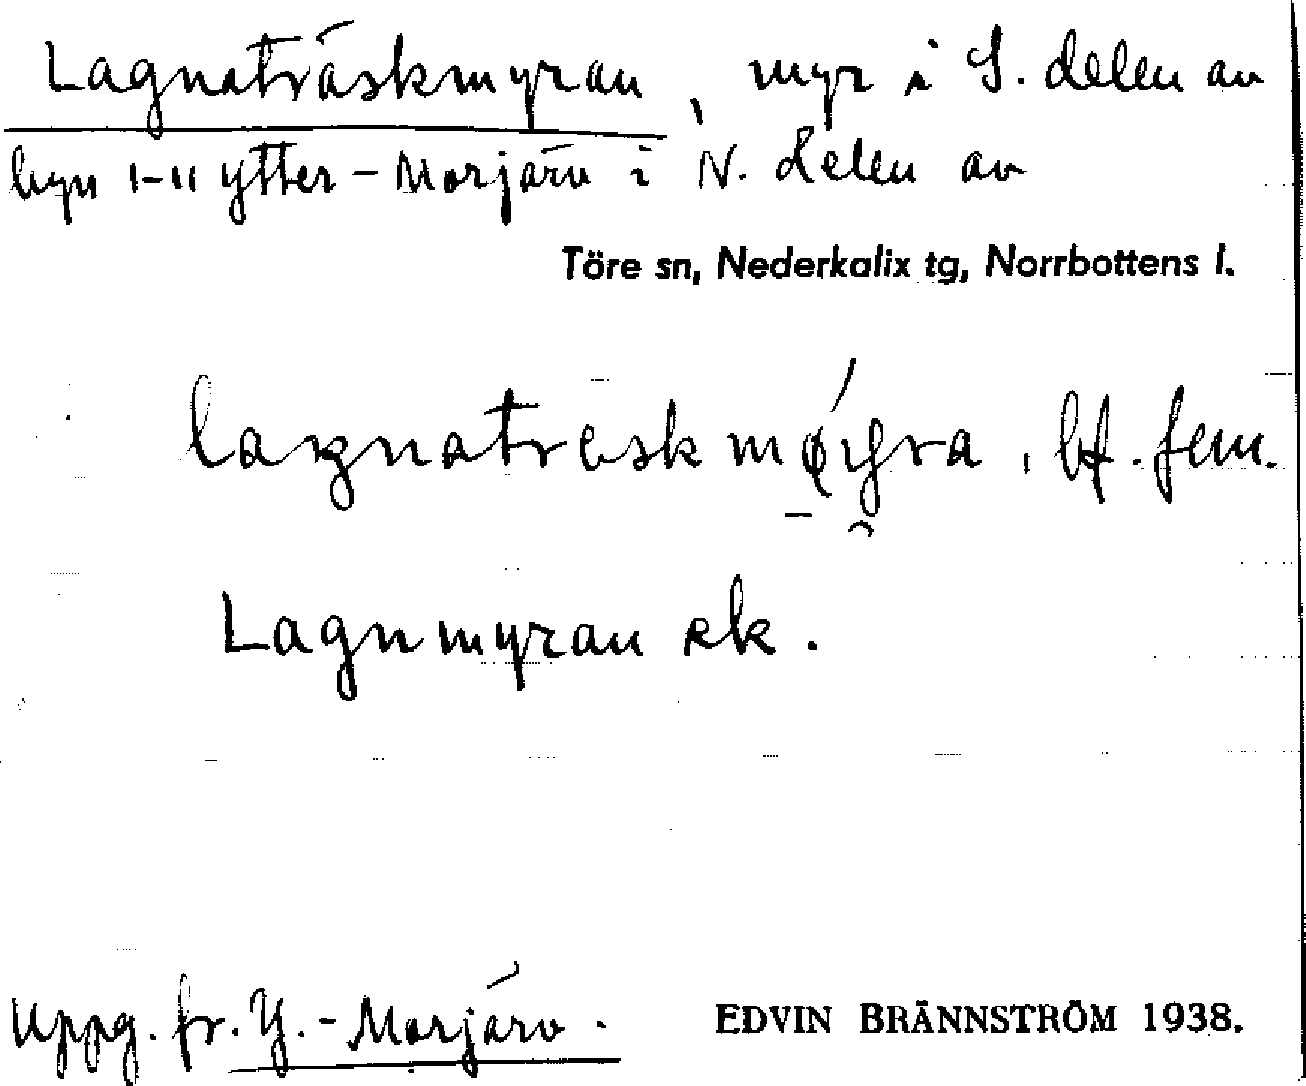 Lagnaträskmyran, myr i S. delen av
byn 1-11 Ytter-Morjärv i N. delen av
Töre sn, Nederkalix tg, Norrbottens l.
bf. fem.
Lagnmyran ek.
Uppg. fr. Y.-Morjärv.
EDVIN BRÄNNSTRÖM 1938.